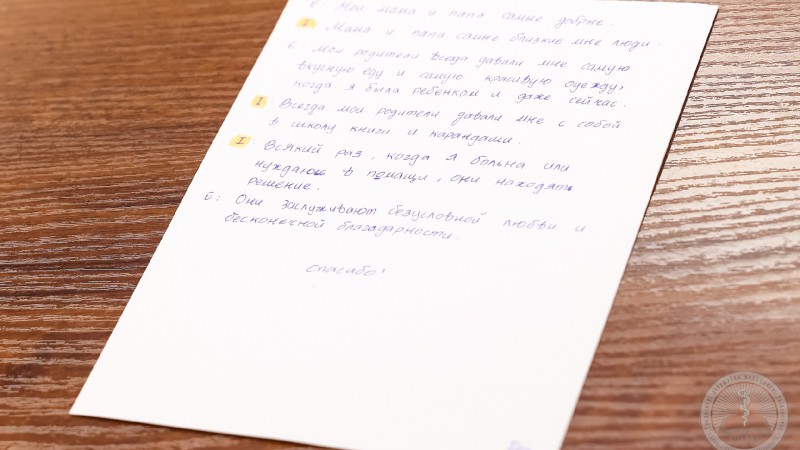 Б: Мои мама и папа самые добрые.
I Мама и папа самые близкие мне люди.
Е: Мои родители всегда давали мне самую
вкусную еду и самую красивую одежду,
когда я была ребенком и даже сейчас.
I Всегда мои родители давали мне с собой
в школу книги и карандаши.
I: Всякий раз, когда я больна или
нуждаюсь в помащи, они находять
решение.
Б: Они заслуживают безусловной любви и
бесконечной благадарности
Спасибо!